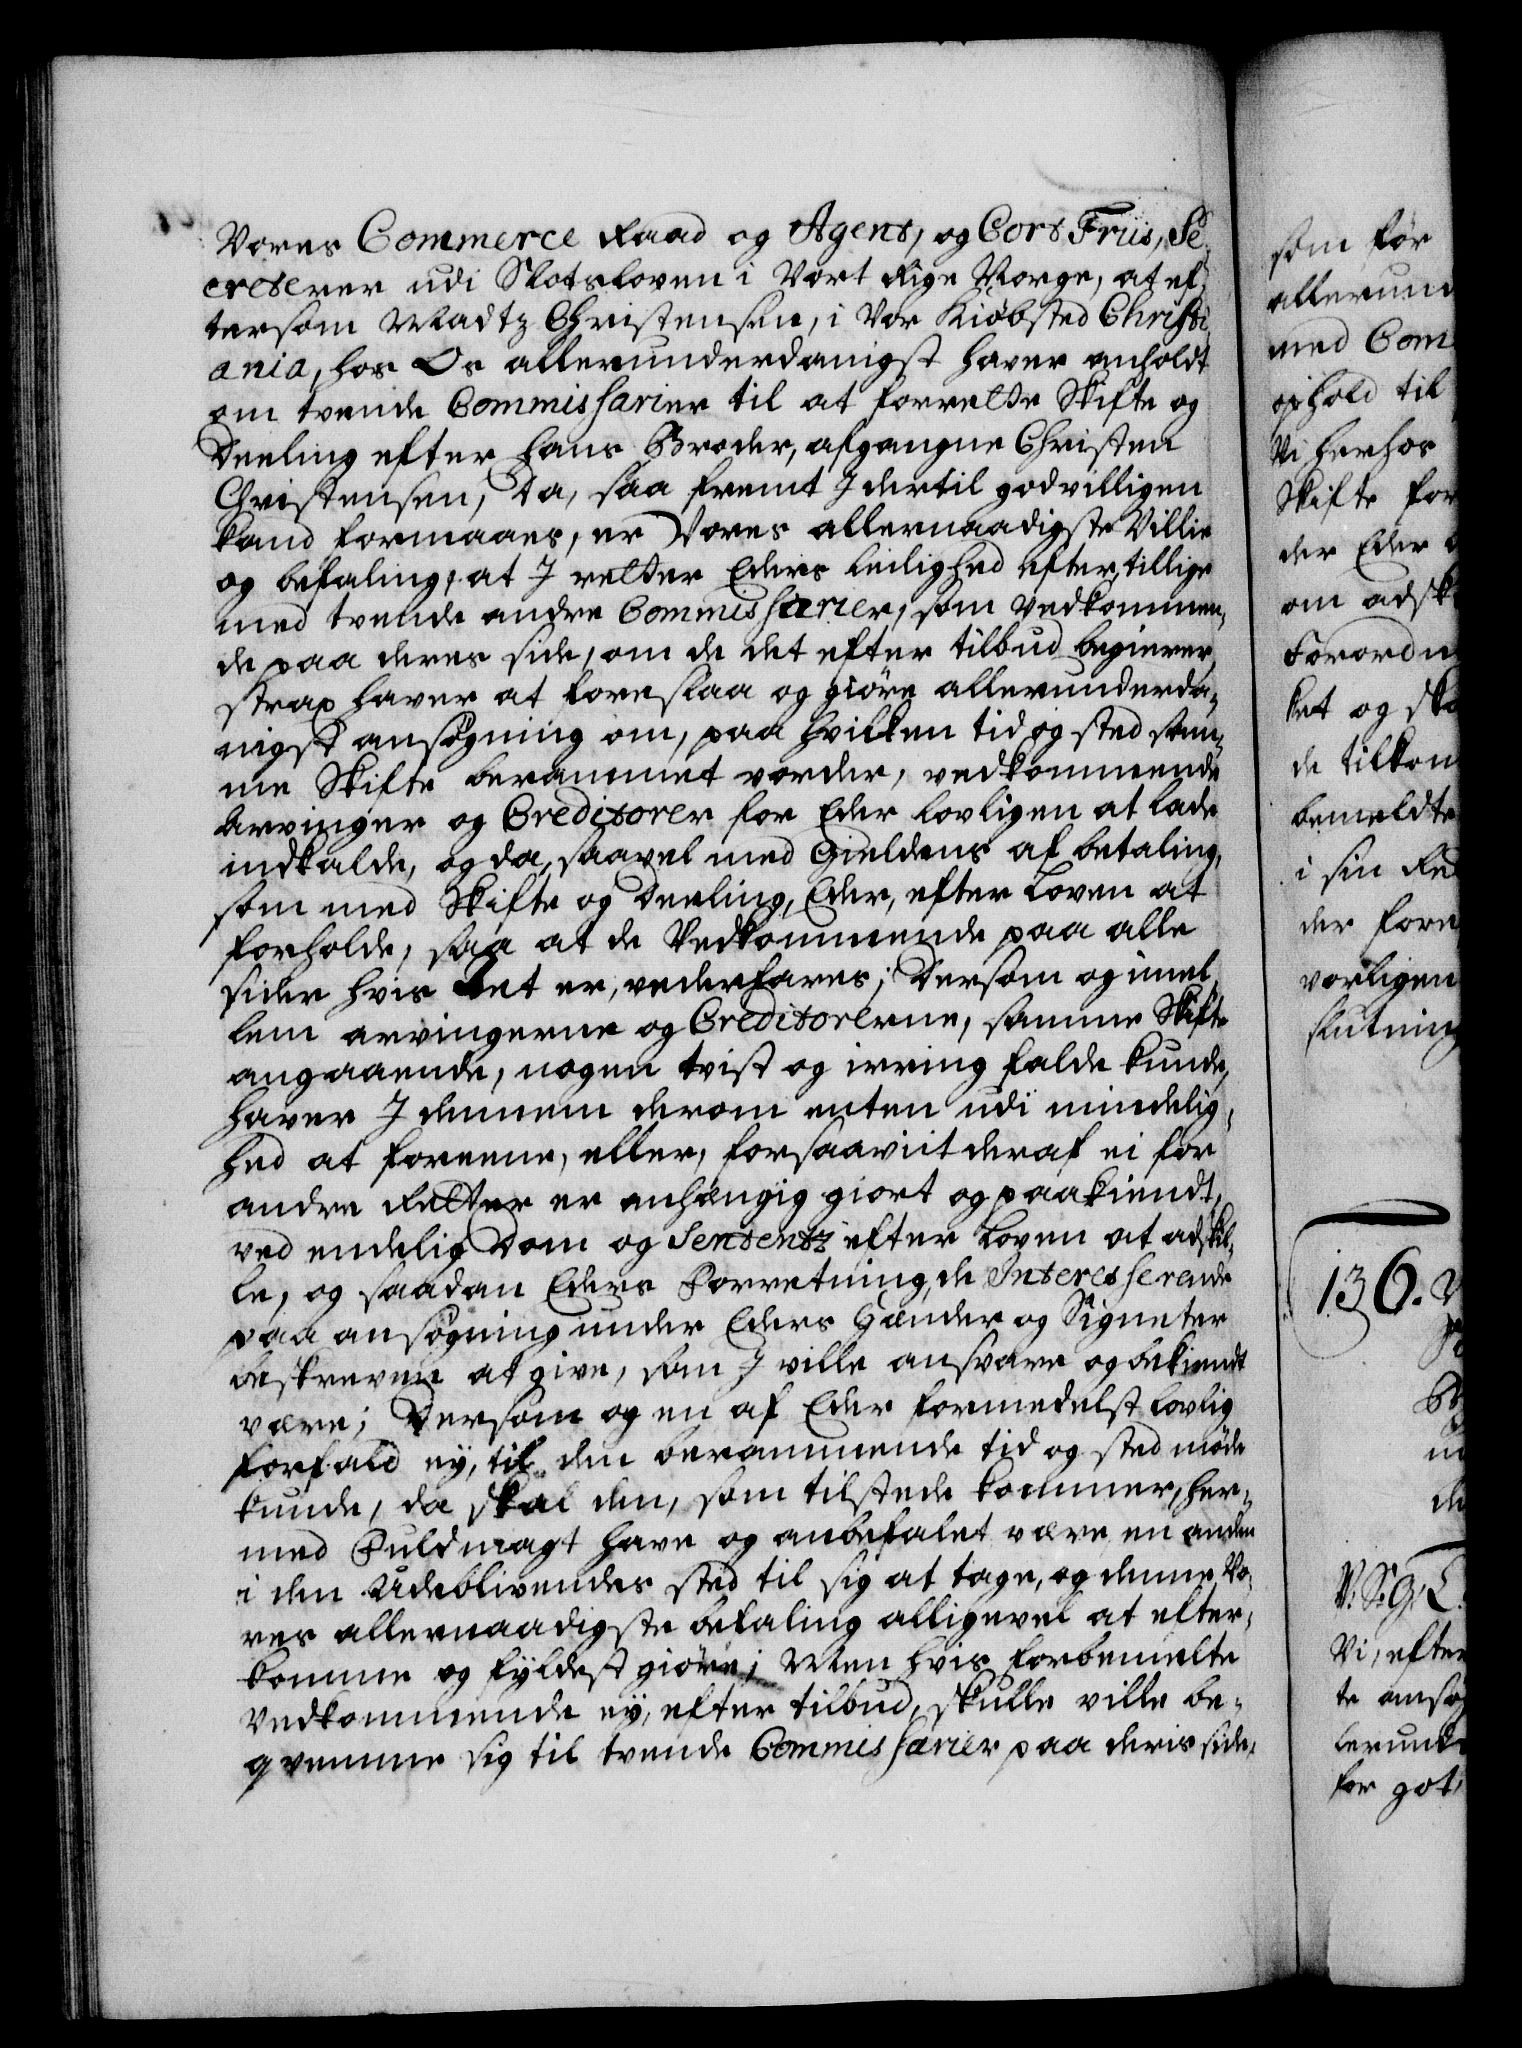 Vores Commerce Raad og Agent, og Cort Friis, Se-
creterer udi Slotsloven i Vort Rige Norge, at ef-
tersom Madtz Christensen, i Vor Kiøbsted Christi-
ania, hos Os allerunderdanigst haver anholdt
om tvende Commissarier til at forrette Skifte og
Deeling efter hans Broder, afgangne Christen
Christensen, Da, saa fremt I dertil godvilligen
kand formaaes, er Vores allernaadigste Villie
og befaling, at I retter Eders leilighed efter, tillige
med tvende andre Commissarier, som vedkommen-
de paa deres side, om de det efter tilbud begierer,
strax haver at foreslaa og giøre allerunderda-
nigst ansøgning om, paa hvilken tid og sted sam-
me Skifte berammet vorder, vedkommende
Arvinger og Creditorer for Eder lovligen at lade
indkalde, og da, saavel med Gieldens af betaling,
som med Skifte og Deeling, Eder, efter Loven at
forholde, saa at de Vedkommende paa alle
sider hvis Ret er, vederfares; Dersom og imel-
lem arvingerne og Creditorerne, samme Skifte
angaaende, nogen tvist og irring falde kunde,
haver I dennem derom enten udi mindelig-
hed at foreene, eller, forsaaviit deraf ei for
andre Retter er anhængig giort og paakiendt,
ved endelig Dom og Sententz efter Loven at adskil-
le, og saadan Eders Forretning, de Interesserende
paa ansøgning under Eders Hænder og Signeter
beskreven at give, som I ville ansvare og bekiendt
være; Dersom og en af Eder formedelst lovlig
forfald ey, til den berammende tid og sted møde
kunde, da skal den, som tilstede kommer, her-
med Fuldmagt have og anbefalet være, en anden
i den Udeblivendes sted til sig at tage, og denne Vo-
res allernaadigste befaling alligevel at efter-
komme og fyldest giøre; Men hvis forbemelte
Vedkommende ey, efter tilbud, skulle ville be-
qvemme sig til tvende Commissarier paa deris side,
som før
allerund
med Com
ophold til
Vi herhos
Skifte for
der Eder
om adsk
Forordn
ket og ska
de tilkom
bemeldte
i sin Re
der fore
vorligen
slutning
136. V
V. S. G. T.
Vi, efter
te ansøg
lerunde
for got,